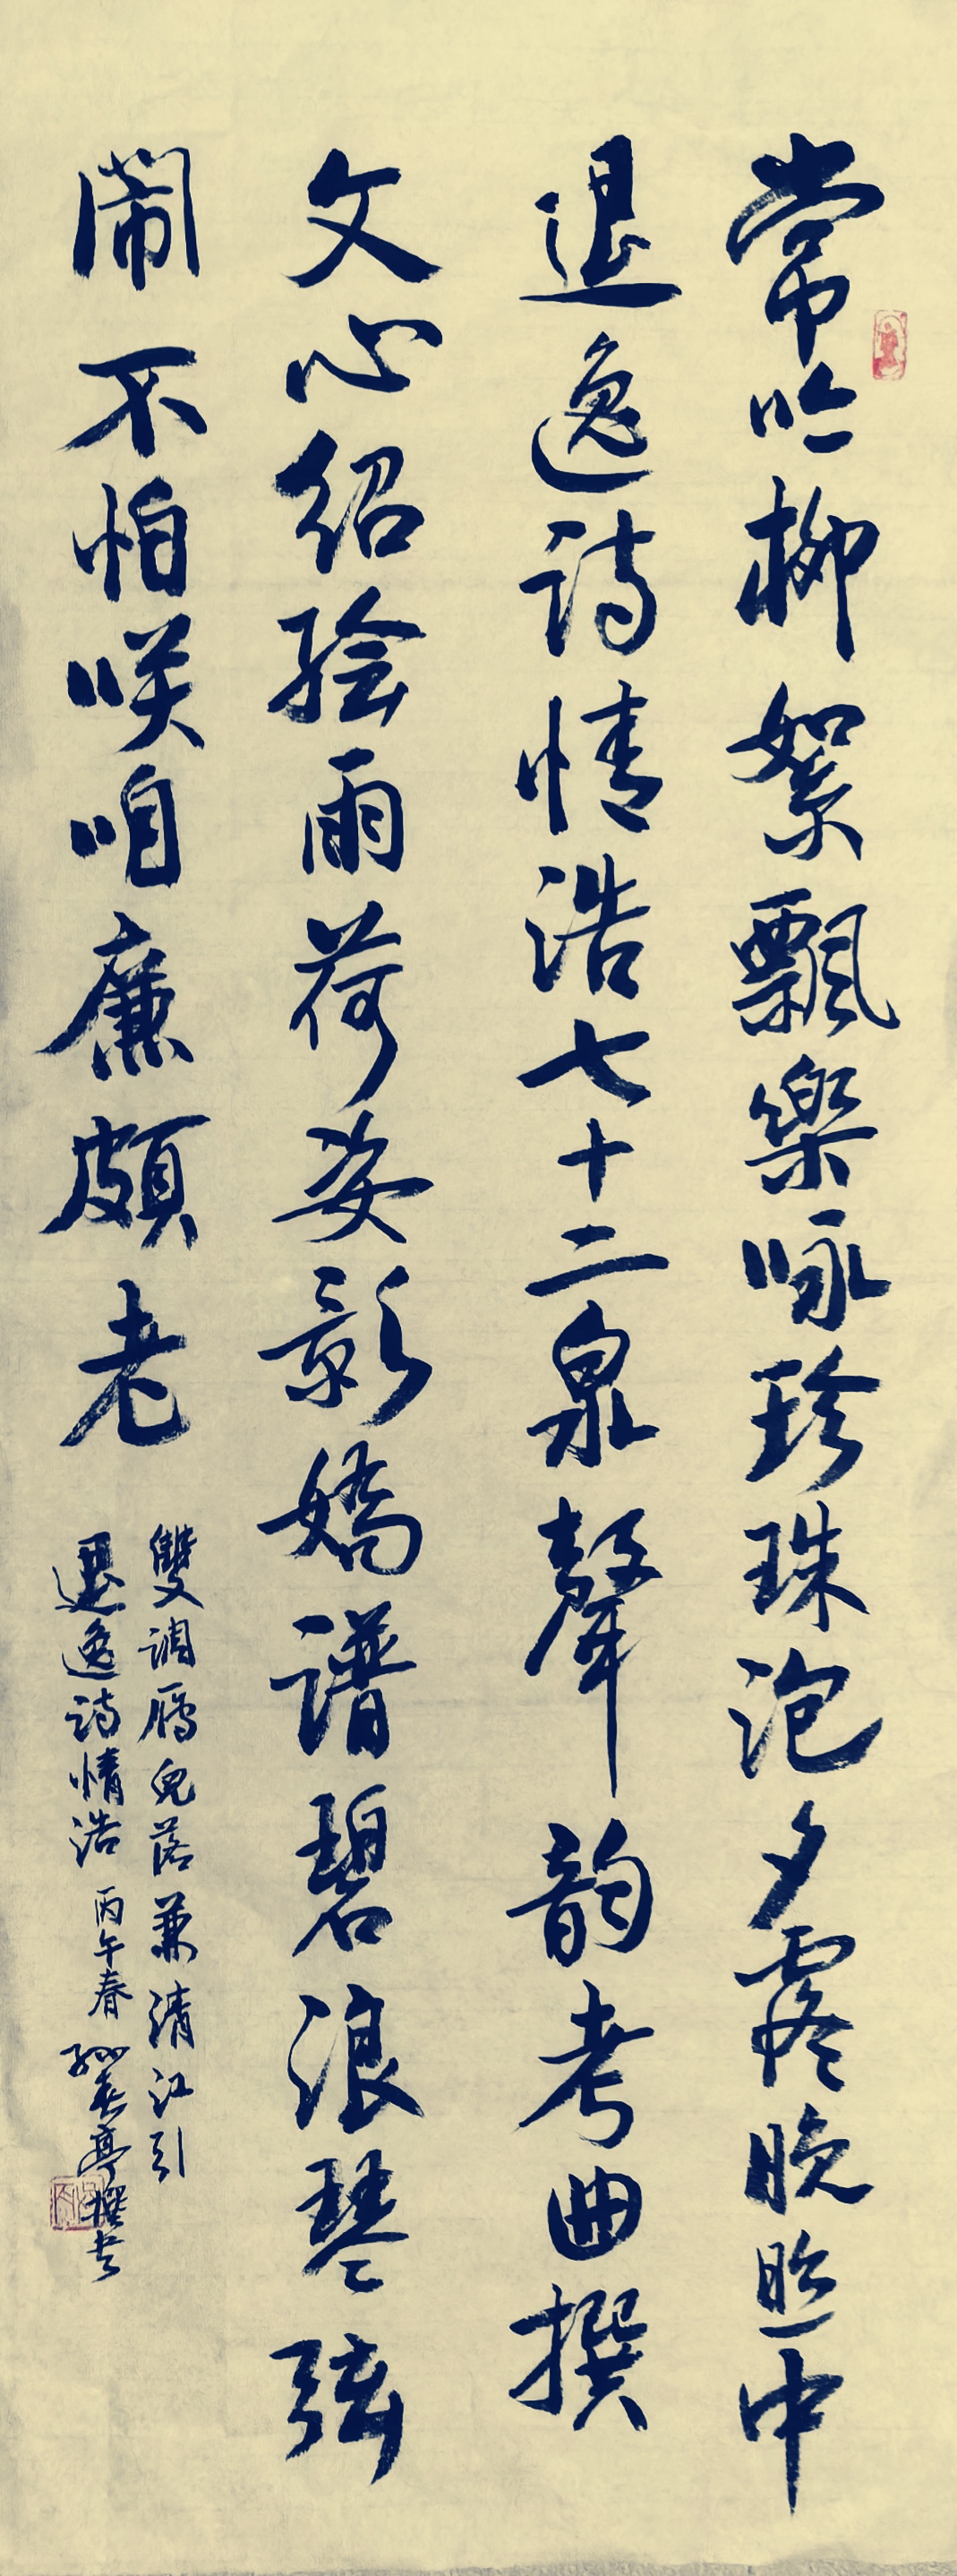 常吟柳絮飄樂咏珍珠泡夕露晚照中
退逸诗情浩七十二泉聲韵考曲撰
文心紹繪雨荷姿影嬌谱碧浪琴弦
鬧不怕咲咱廉頗老
雙调雁兒落兼清江引
退逸诗情浩 丙午春 孫 亭撰书